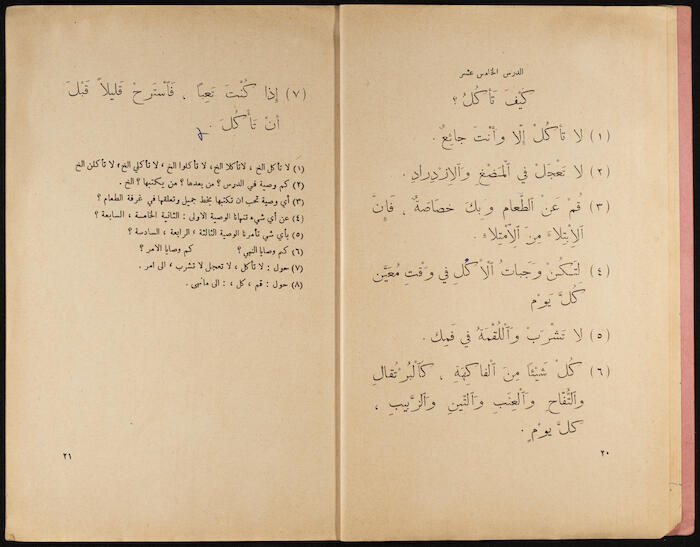 الدرس الخامس عشر
كَيْفَ تَأْكُلُ ؟
(١) لا تَأْكُلْ إِلّا وَأَنْتَ جائِعٌ .
(٢) لا تَعْجَلْ في ٱلْمَضْغِ وَٱلاِزْدِرادِ .
(٣) قُمْ عَنْ ٱلطَّعامِ وَبِكَ خَصاصَةٌ ، فَإِنَّ
ٱلاِبْتِلاءَ مِنَ ٱلاِمْتِلاءِ .
(٤) لِتَكُنْ وَجَباتُ ٱلأَكْلِ في وَقْتٍ مُعَيَّنٍ
كُلَّ يَوْم
(٥) لا تَشْرَبْ وَٱللُّقْمَةُ في فَمِكَ .
(٦) كُلْ شَيْئًا مِنَ ٱلفاكِهَةِ ، كَٱلْبُرْتُقالِ
وَٱلتُّفّاحِ وَٱلْعِنَبِ وَٱلتّينِ وَٱلزَّبيبِ ،
كُلَّ يَوْمٍ .
٢٠
(٧) إِذا كُنْتَ تَعِبًا ، فَٱسْتَرِحْ قَليلاً قَبْلَ
أَنْ تَأْكُلَ .
(١) لا تأكل الخ ، لاتأكلا الخ، لا تأكلوا الخ ، لا تأكلي الخ، لا تأكلن الخ
(٢) كم وصية في الدرس ؟ من يعدها ؟ من يكتبها ؟ الخ .
(٣) أي وصية تحب ان تكتبها بخط جميل وتعلقها في غرفة الطعام ؟
(٤) عن أي شيء تنهانا الوصية الاولى : الثانية الخامسة ، السابعة ؟
(٥) بأي شي تأمرنا الوصية الثالثة ، الرابعة ، السادسة ؟
(٦) كم وصايا النهي ؟ كم وصايا الامر ؟
(٧) حول : لا تأكل ، لا تعجل لا تشرب ، الى امر .
(٨) حول : قم ، كل ، : الى مانهى .
٢١